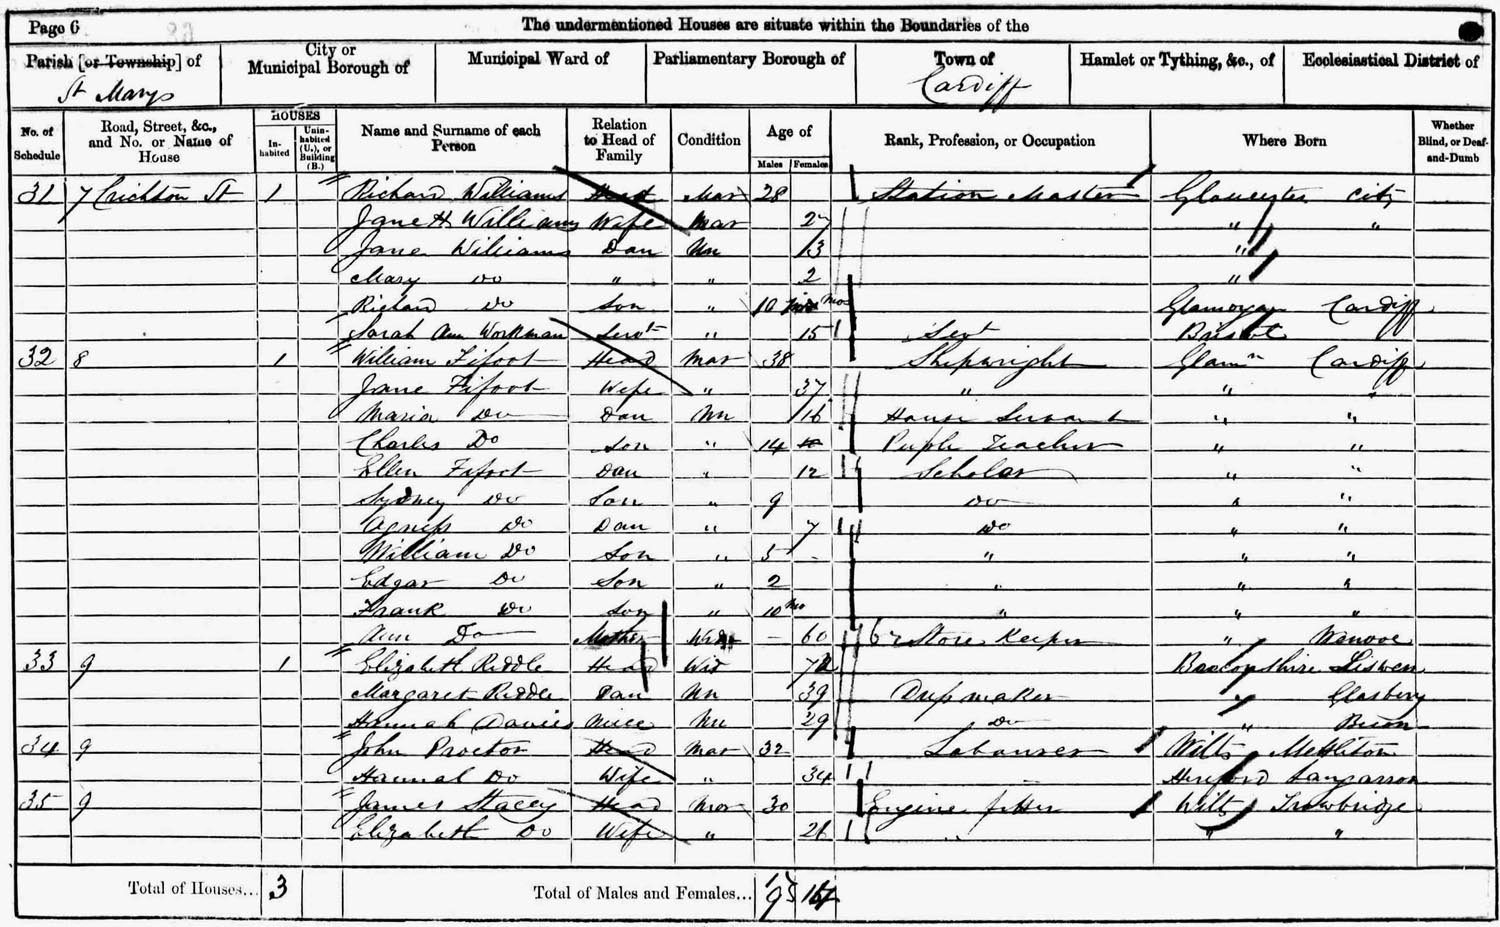 Page 6 The undermentioned Houses are situate within the Boundaries of the
Parish [or Township] of City or Municipal Borough of Municipal Ward of Parliamentary Borough of Town of Hamlet or Tything, &c., of Ecclesiastical District of
St Marys Cardiff
No. of Schedule Road, Street, &c., and No. or Name of House HOUSES Inhabited Uninhabited (U.), or Building (B.) Name and Surname of each Person Relation to Head of Family Condition Age of Males Females Rank, Profession, or Occupation Where Born Whether Blind, or Deaf-and-Dumb
31 7 Crichton St 1 Richard Williams Head Mar 28 Station Master Gloucester City
Jane H Williams Wife Mar 27 " "
Jane Williams Dau Un 13 "
Mary Do " " 2 "
Richard Do Son " 10 mos Glamorgan Cardiff
Sarah Ann Workman Servt " 15 Servt Bristol
32 8 1 William Fifoot Head Mar 38 Shipwright Glamn Cardiff
Jane Fifoot Wife " 37 " " "
Maria Do Dau Un 16 House Servant " "
Charles Do Son " 14 Pupil Teacher " "
Ellen Fifoot Dau " 12 Scholar " "
Sydney Do Son " 9 Do " "
Agness Do Dau " 7 Do " "
William Do Son " 5 " " "
Edgar Do Son " 2 " " "
Frank Do Son " 10 mo " " "
Ann Do Mother Widw 60 Store Keeper " Wenvoe
33 9 1 Elizabeth Riddle Head Wid 72
Margaret Riddle Dau Un 39 Dressmaker " Glasbury
Hannah Davies Niece Un 29 Do " Brecon
34 9 John Proctor Head Mar 32 Labourer Wilts
Hannah Do Wife " 34 Hereford
35 9 James Stacey Head Mar 30 Engine fitter Wilts Trowbridge
Elizabeth Do Wife " 26 " " "
Total of Houses... 3 Total of Males and Females... 14